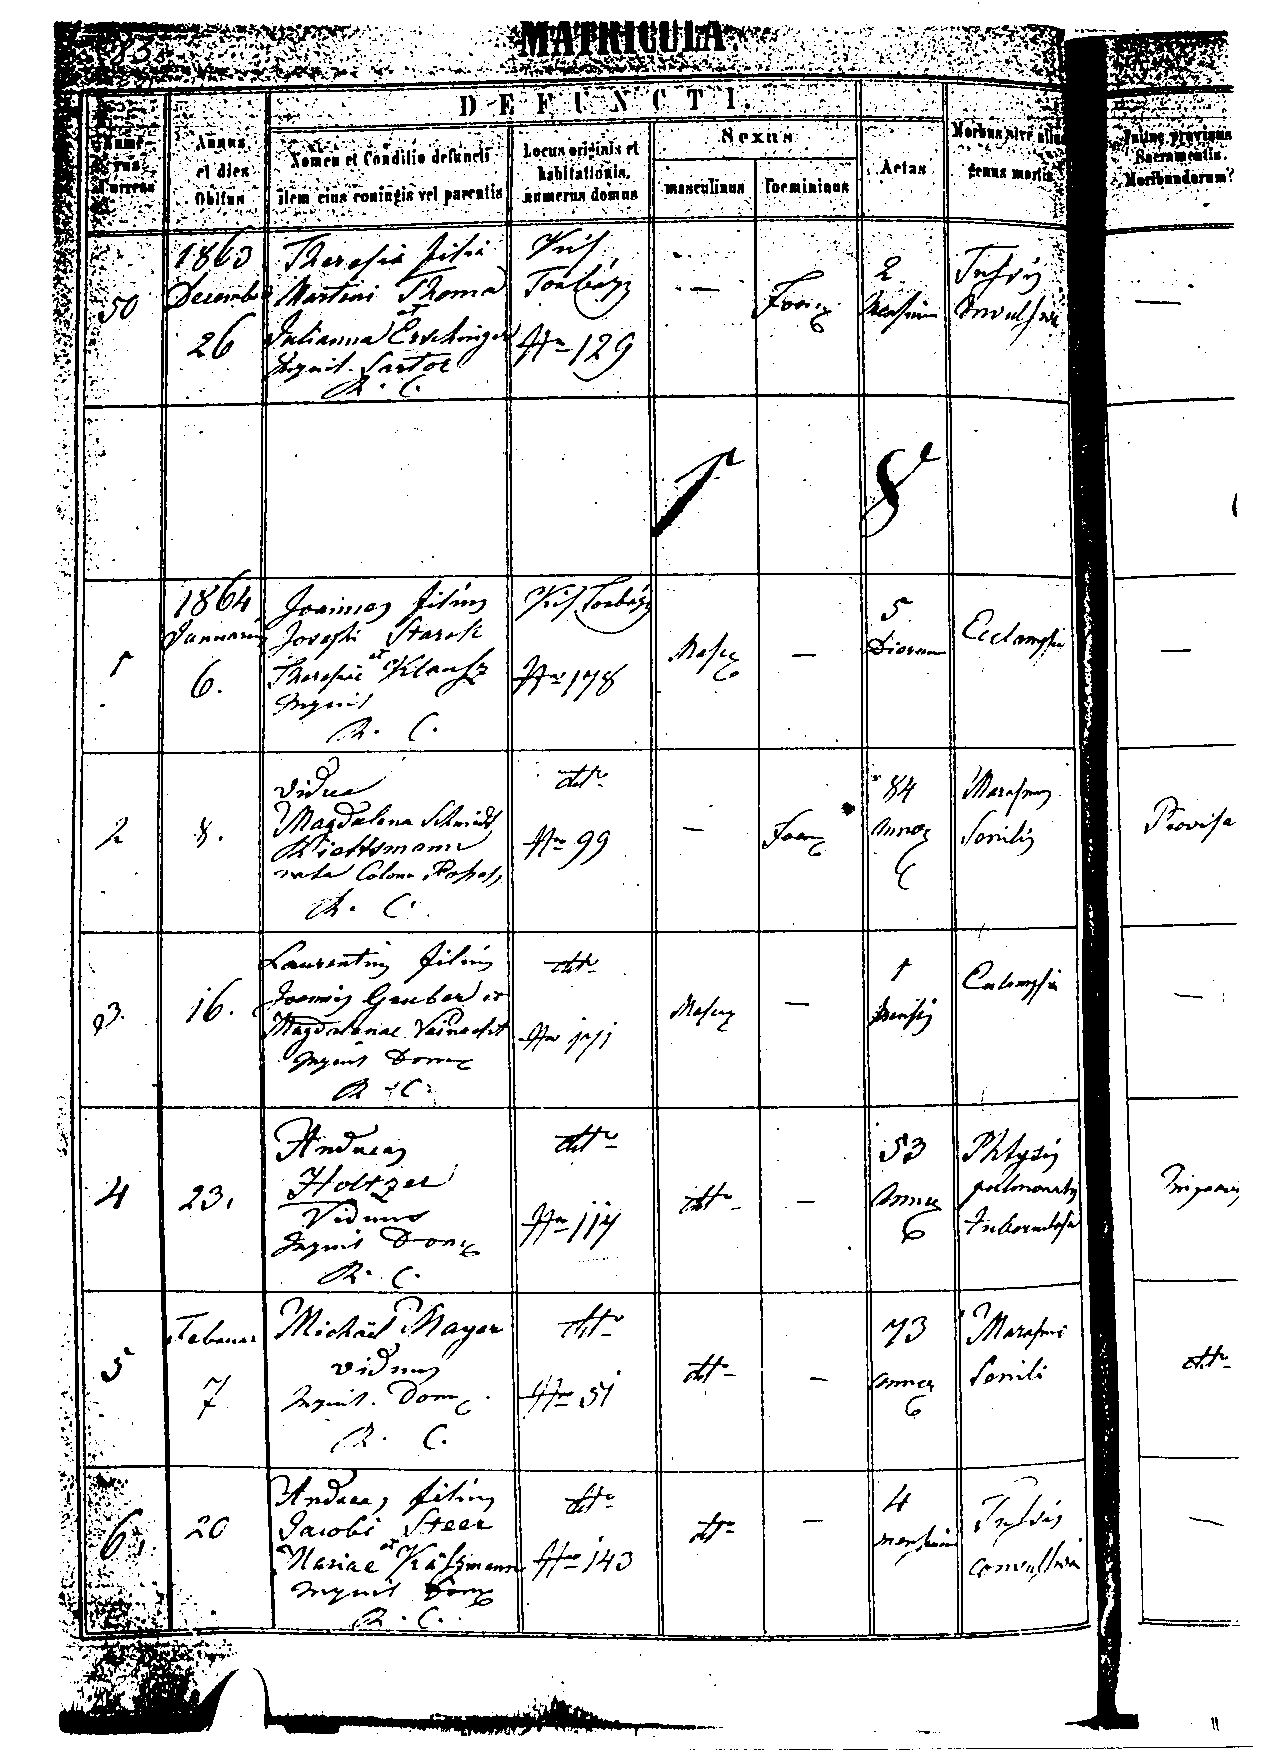 MATRICULA.
DEFUNCTI.
Numerus currens
Annus et dies Obitus
Nomen et Conditio defuncti item eius coniugis vel parentis
Locus originis et habitationis, numerus domus
Sexus
masculinus
foemininus
Aetas
Morbus sive aliud genus mortis
Fuitne provisus Sacramentis Moribundorum?
50
1863
December
26
Theresia filia
Martini Thoma
et
Julianna
Inquil. Sartor
R. C.
Kis
Torbágy
Nro 129
—
Foem
2
mensium
Tussis
convulsiva
—
1 8
1864
Januarius
1
6.
Joannes filius
Josephi Starck
et
Theresiae Klausz
Inquil
R. C.
Kis Torbágy
Nro 178
Masc
—
5
Dierum
Eclampsia
—
2
8.
Vidua
Magdalena Schmidt
nata Colona
R. C.
dtto
Nro 99
—
Foem
84
Annor
Marasmus
Senilis
Provisa
3.
16.
Laurentius filius
Joannis Gruber et
Magdalenae
Inquil Dom
R. C.
dtto
Nro 171
Masc
—
1
mensis
Eclampsia
—
4
23.
Andreas
Holtzer
Viduus
Inquil Dom
R. C.
dtto
Nro 114
dtto
—
53
Annor
Phtysis
pulmonalis
tuberculosa
5
Februar
7
Michael Mayer
viduus
Inquil. Dom
R. C.
dtto
Nro 51
dtto
—
73
Annor
Marasmus
Senili
dtto
6.
20
Andreas filius
Jacobi Steer
et
Mariae
Inquil Dom
R. C.
dtto
Nro 143
dtto
—
4
mensium
Tussis
convulsiva
—